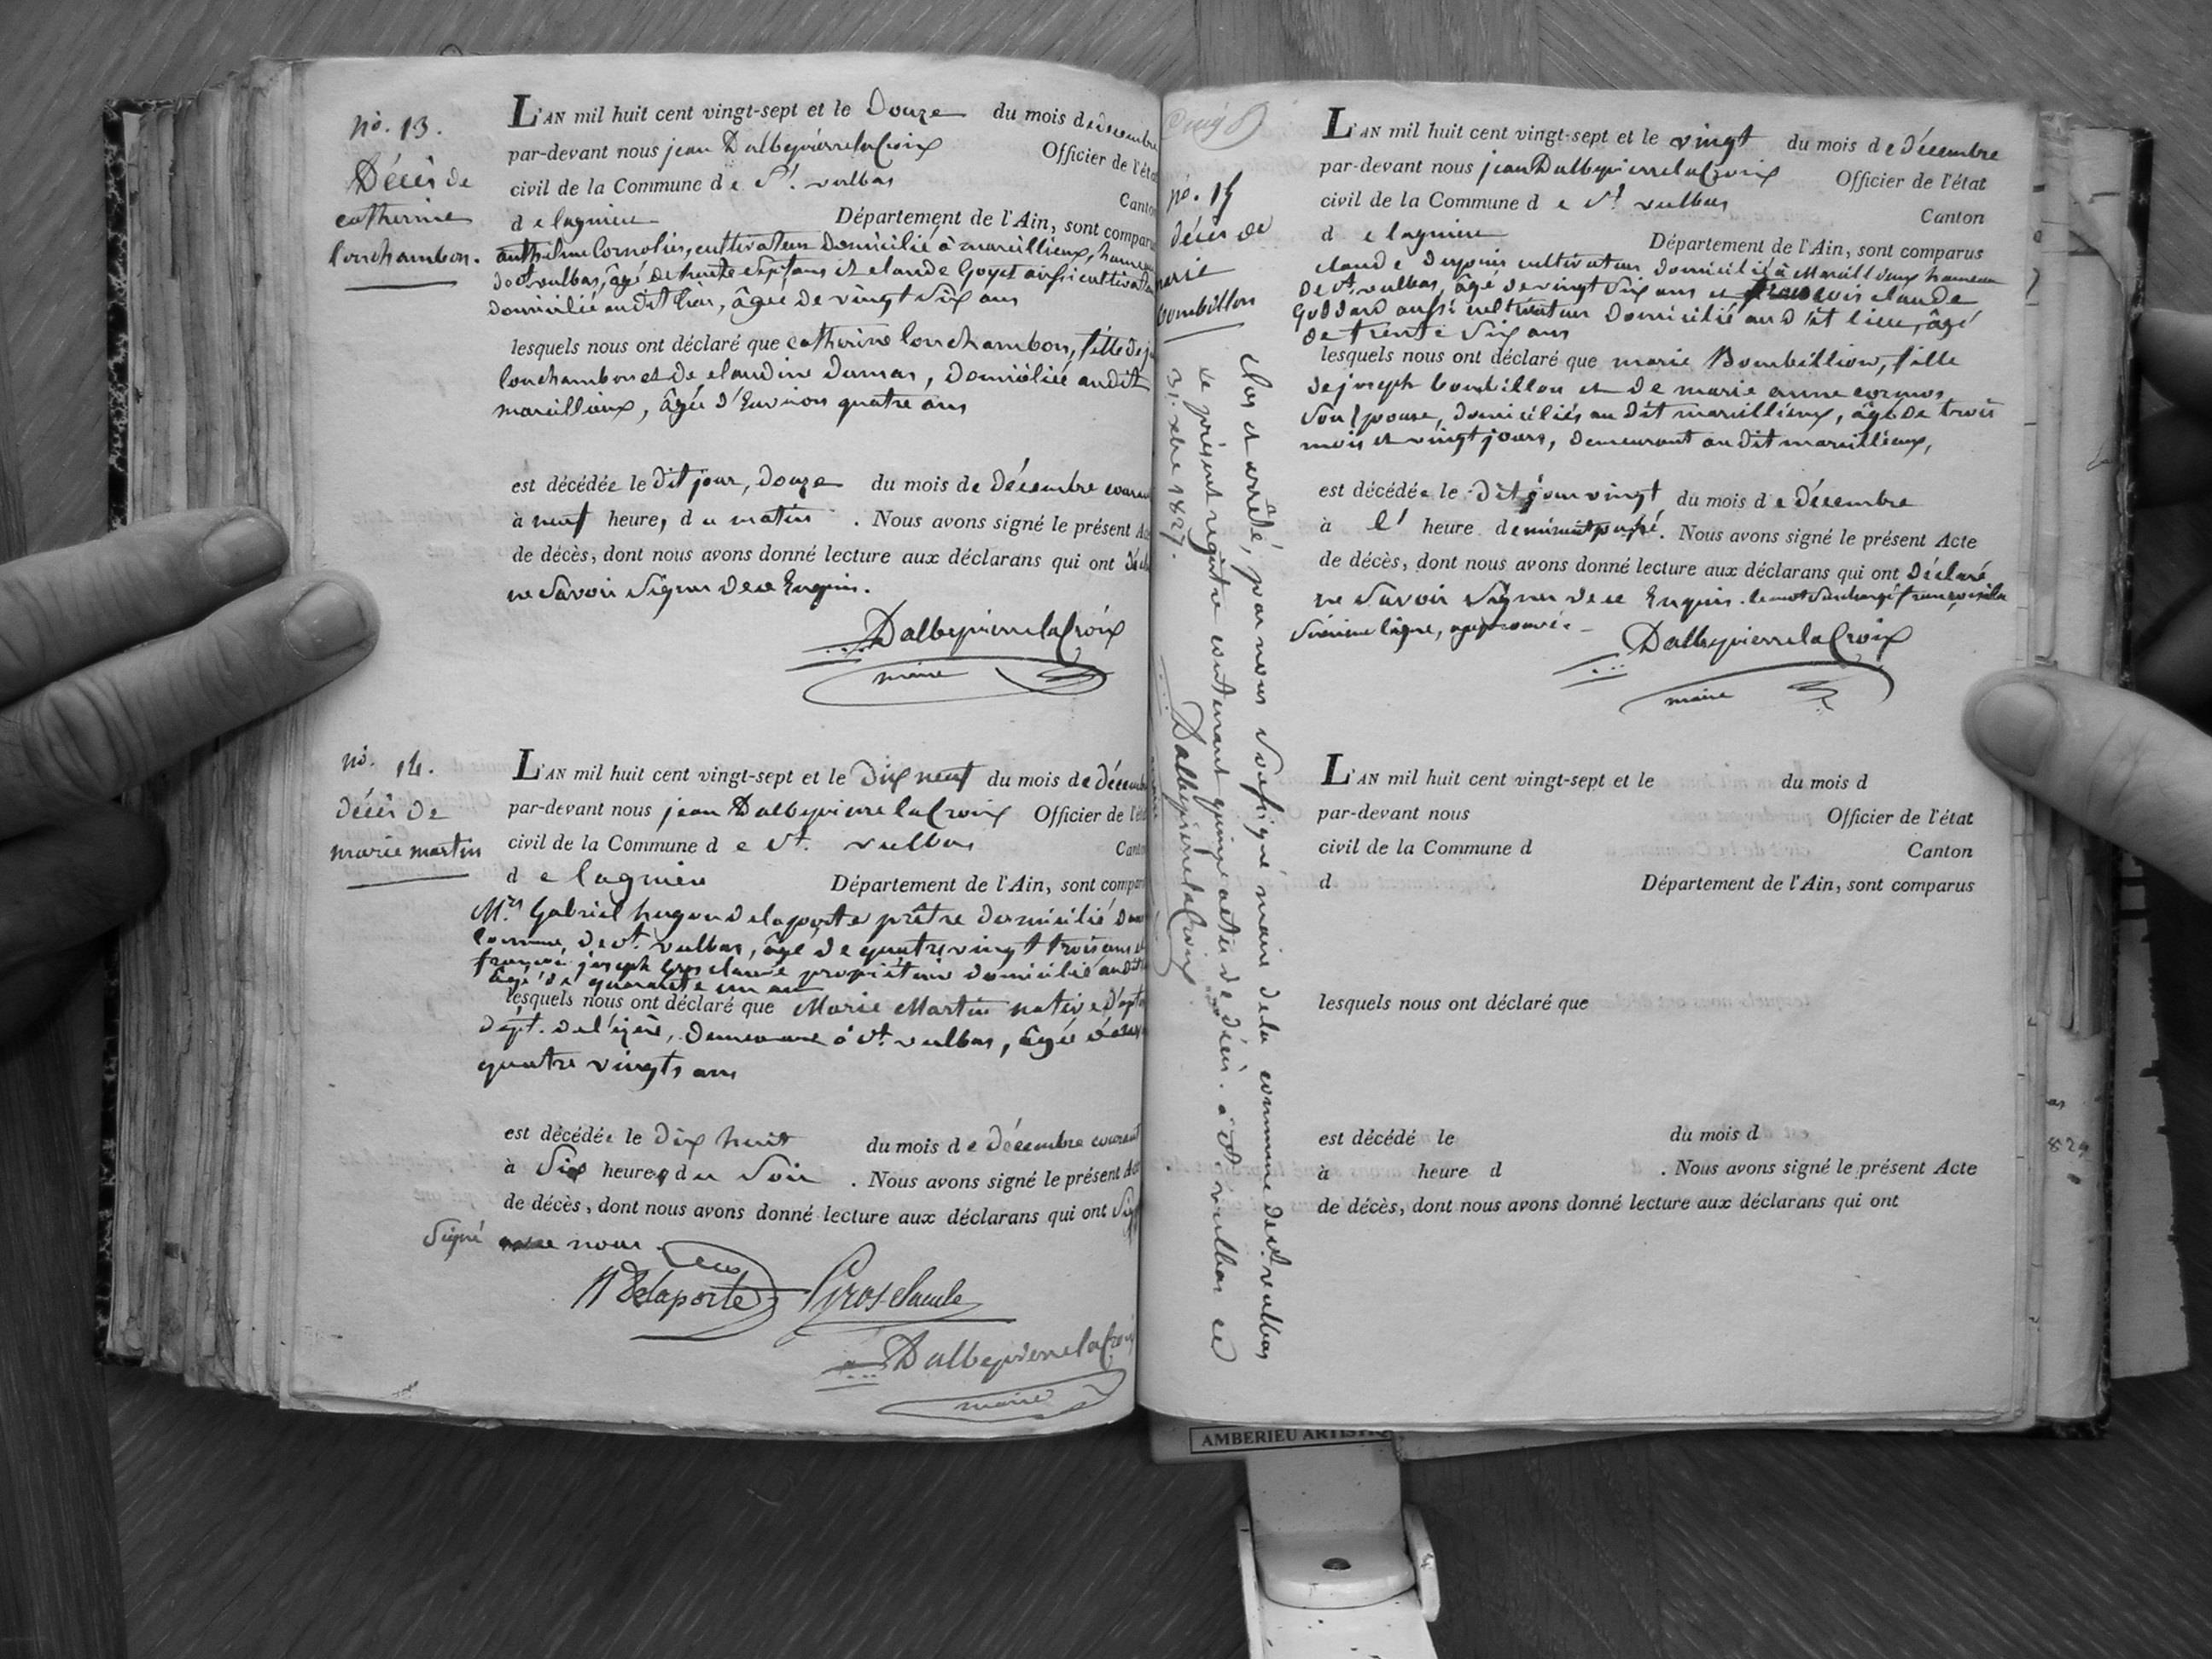 no. 13.
Décès de
catherine
lonchambon.
L'AN mil huit cent vingt-sept et le Douze du mois de décembre
par-devant nous jean Dalbepierrelacroix Officier de l'éta
civil de la Commune de St. vulbas Canton
de lagnieu Département de l'Ain, sont compar
anthelme Cornolin, cultivateur Domicilié à marcillieux, hameau
de St. vulbas, âgé de trente sept ans et claude Goyet aussi cultivateur
domicilié au dit lieu, âgé de vingt six ans
lesquels nous ont déclaré que catherine lonchambon, fille de j
lonchambon et de claudine dumas, domiciliée audit
marcillieux, âgée d'Environ quatre ans
est décédée le dit jour, douze du mois de décembre couran
à neuf heures du matin. Nous avons signé le présent Ac
de décès, dont nous avons donné lecture aux déclarans qui ont décla
ne savoir signer de ce Enquis.
Dalbepierrelacroix
maire
no. 14.
décès de
marie martin
L'AN mil huit cent vingt-sept et le dix neuf du mois de décemb
par-devant nous jean Dalbepierre lacroix Officier de l'éta
civil de la Commune de St. vulbas Canto
de lagnieu Département de l'Ain, sont compar
Mr. Gabriel hugon delaporte prêtre domicilié
commune de St. vulbas, âgé de quatre vingt trois ans et
françois joseph Gros claude propriétaire domicilié audit
âgé de quarante un ans
lesquels nous ont déclaré que Marie Martin native d'opto
dépt. de l'izère, demeurant à St. vulbas, âgée
quatre vingts ans
est décédée le dix huit du mois de décembre courant
à six heures du soir. Nous avons signé le présent Ac
de décès, dont nous avons donné lecture aux déclarans qui ont sig
signé nous.
Delaporte Grosclaude
Dalbepierrelacroix
maire
no. 15
décès de
marie
bombillon
Clos et arrêté, par nous soussigné maire de la commune de St. vulbas
le présent registre contenant quinze actes de décès. à St. vulbas ce
31 xbre 1827.
Dalbepierrelacroix
L'AN mil huit cent vingt-sept et le vingt du mois de décembre
par-devant nous jean Dalbepierrelacroix Officier de l'état
civil de la Commune de St. vulbas Canton
de lagnieu Département de l'Ain, sont comparus
claude cultivateur domicilié à Marcillieux hameau
de St. vulbas, âgé de vingt six ans et françois claude
Goddard aussi cultivateur domicilié au dit lieu, âgé
de trente six ans
lesquels nous ont déclaré que marie Bombillion, fille
de joseph bombillon et de marie anne cormos
son Epouse, domiciliés au dit marcillieux, âgé de trois
mois et vingt jours, demeurant au dit marcillieux,
est décédée le dit jour vingt du mois de décembre
à l' heure de minuit passé. Nous avons signé le présent Acte
de décès, dont nous avons donné lecture aux déclarans qui ont déclaré
ne savoir signer de ce Enquis. le mot surchargé françois à la
sixième ligne, approuvé.
Dalbepierrelacroix
maire
L'AN mil huit cent vingt-sept et le du mois d
par-devant nous Officier de l'état
civil de la Commune d Canton
d Département de l'Ain, sont comparus
lesquels nous ont déclaré que
est décédé le du mois d
à heure d . Nous avons signé le présent Acte
de décès, dont nous avons donné lecture aux déclarans qui ont
AMBERIEU ARTISTI